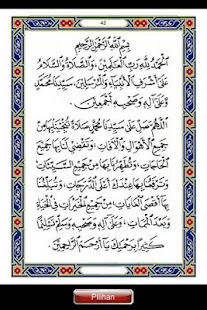 42
بِسْمِ اللَّهِ الرَّحْمَنِ الرَّحِيمِ
اَلْحَمْدُ لِلَّهِ رَبِّ الْعَالَمِينَ، وَالصَّلَاةُ وَالسَّلَامُ
عَلَى أَشْرَفِ الْأَنْبِيَاءِ وَالْمُرْسَلِينَ، سَيِّدِنَا مُحَمَّدٍ
وَعَلَى آلِهِ وَصَحْبِهِ أَجْمَعِينَ.
اَللَّهُمَّ صَلِّ عَلَى سَيِّدِنَا مُحَمَّدٍ صَلَاةً تُنْجِيْنَا بِهَا مِنْ
جَمِيعِ الْأَهْوَالِ وَالْآفَاتِ، وَتَقْضِي لَنَا بِهَا جَمِيعَ
الْحَاجَاتِ، وَتُطَهِّرُنَا بِهَا مِنْ جَمِيعِ السَّيِّئَاتِ،
وَتَرْفَعُنَا بِهَا عِنْدَكَ أَعْلَى الدَّرَجَاتِ، وَتُبَلِّغُنَا
بِهَا أَقْصَى الْغَايَاتِ، مِنْ جَمِيعِ الْخَيْرَاتِ فِي الْحَيَاةِ
وَبَعْدَ الْمَمَاتِ، وَعَلَى آلِهِ وَصَحْبِهِ وَسَلِّمْ تَسْلِيمًا
كَثِيرًا بِرَحْمَتِكَ يَا أَرْحَمَ الرَّاحِمِينَ.
Pilihan